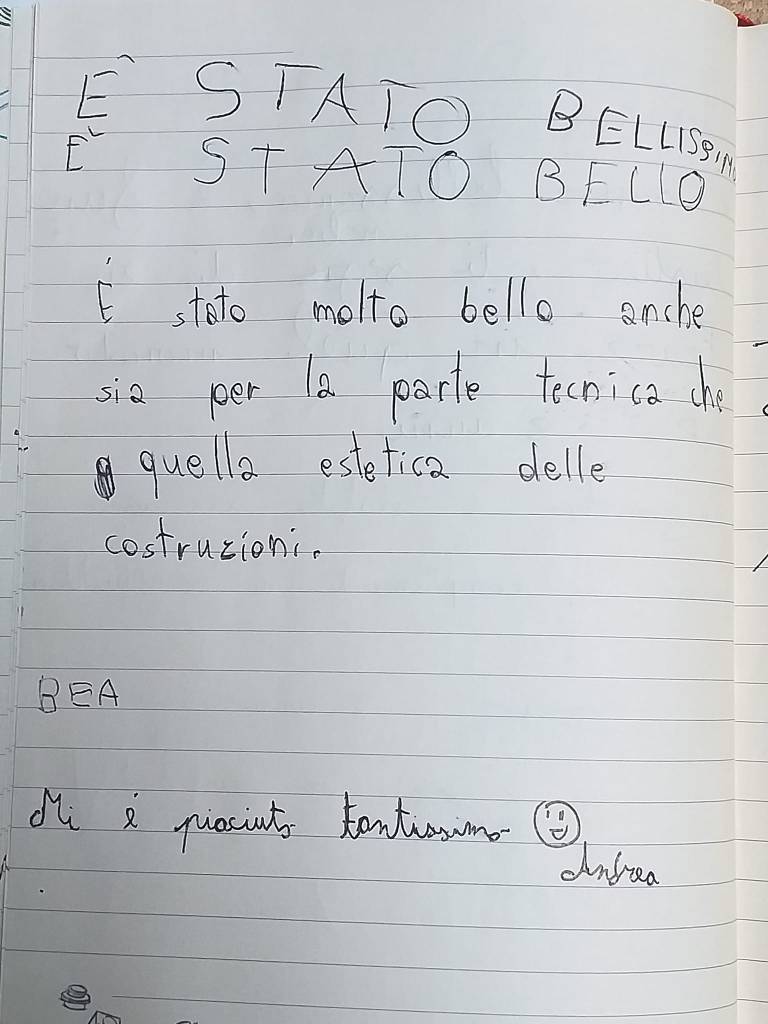 E STATO BELLISSIM
E' STATO BELLO
É stato molto bello anche
sia per la parte tecnica che
quella estetica delle
costruzioni.
BEA
Mi é piaciuto tantissimo
Andrea